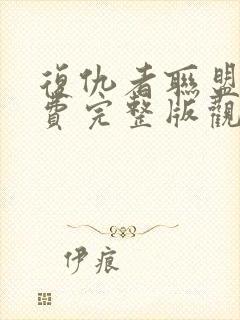 復仇者聯盟
費完整版觀
伊痕